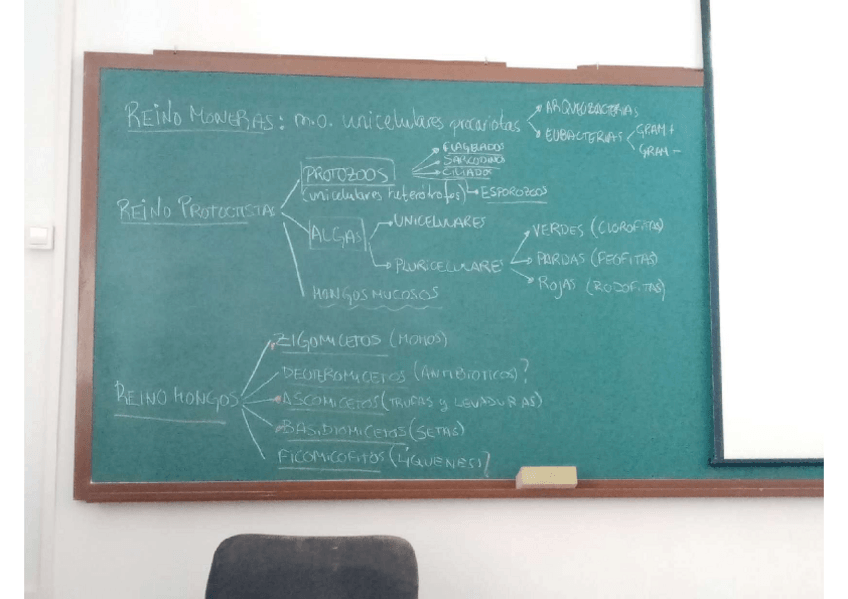 REINO MONERAS: m.o. unicelulares procariotas
ARQUEOBACTERIAS
EUBACTERIAS
GRAM +
GRAM -
REINO PROTOCTISTA:
PROTOZOOS
(unicelulares heterótrofos)
FLAGELADOS
SARCODINOS
CILIADOS
ESPOROZOOS
ALGAS
UNICELULARES
PLURICELULARES
VERDES (CLOROFITAS)
PARDAS (FEOFITAS)
ROJAS (RODOFITAS)
HONGOS MUCOSOS
REINO HONGOS
ZIGOMICETOS (MOHOS)
DEUTEROMICETOS (ANTIBIOTICOS)?
ASCOMICETOS (TRUFAS y LEVADURAS)
BASIDIOMICETOS (SETAS)
FICOMICOFITOS (LÍQUENES)